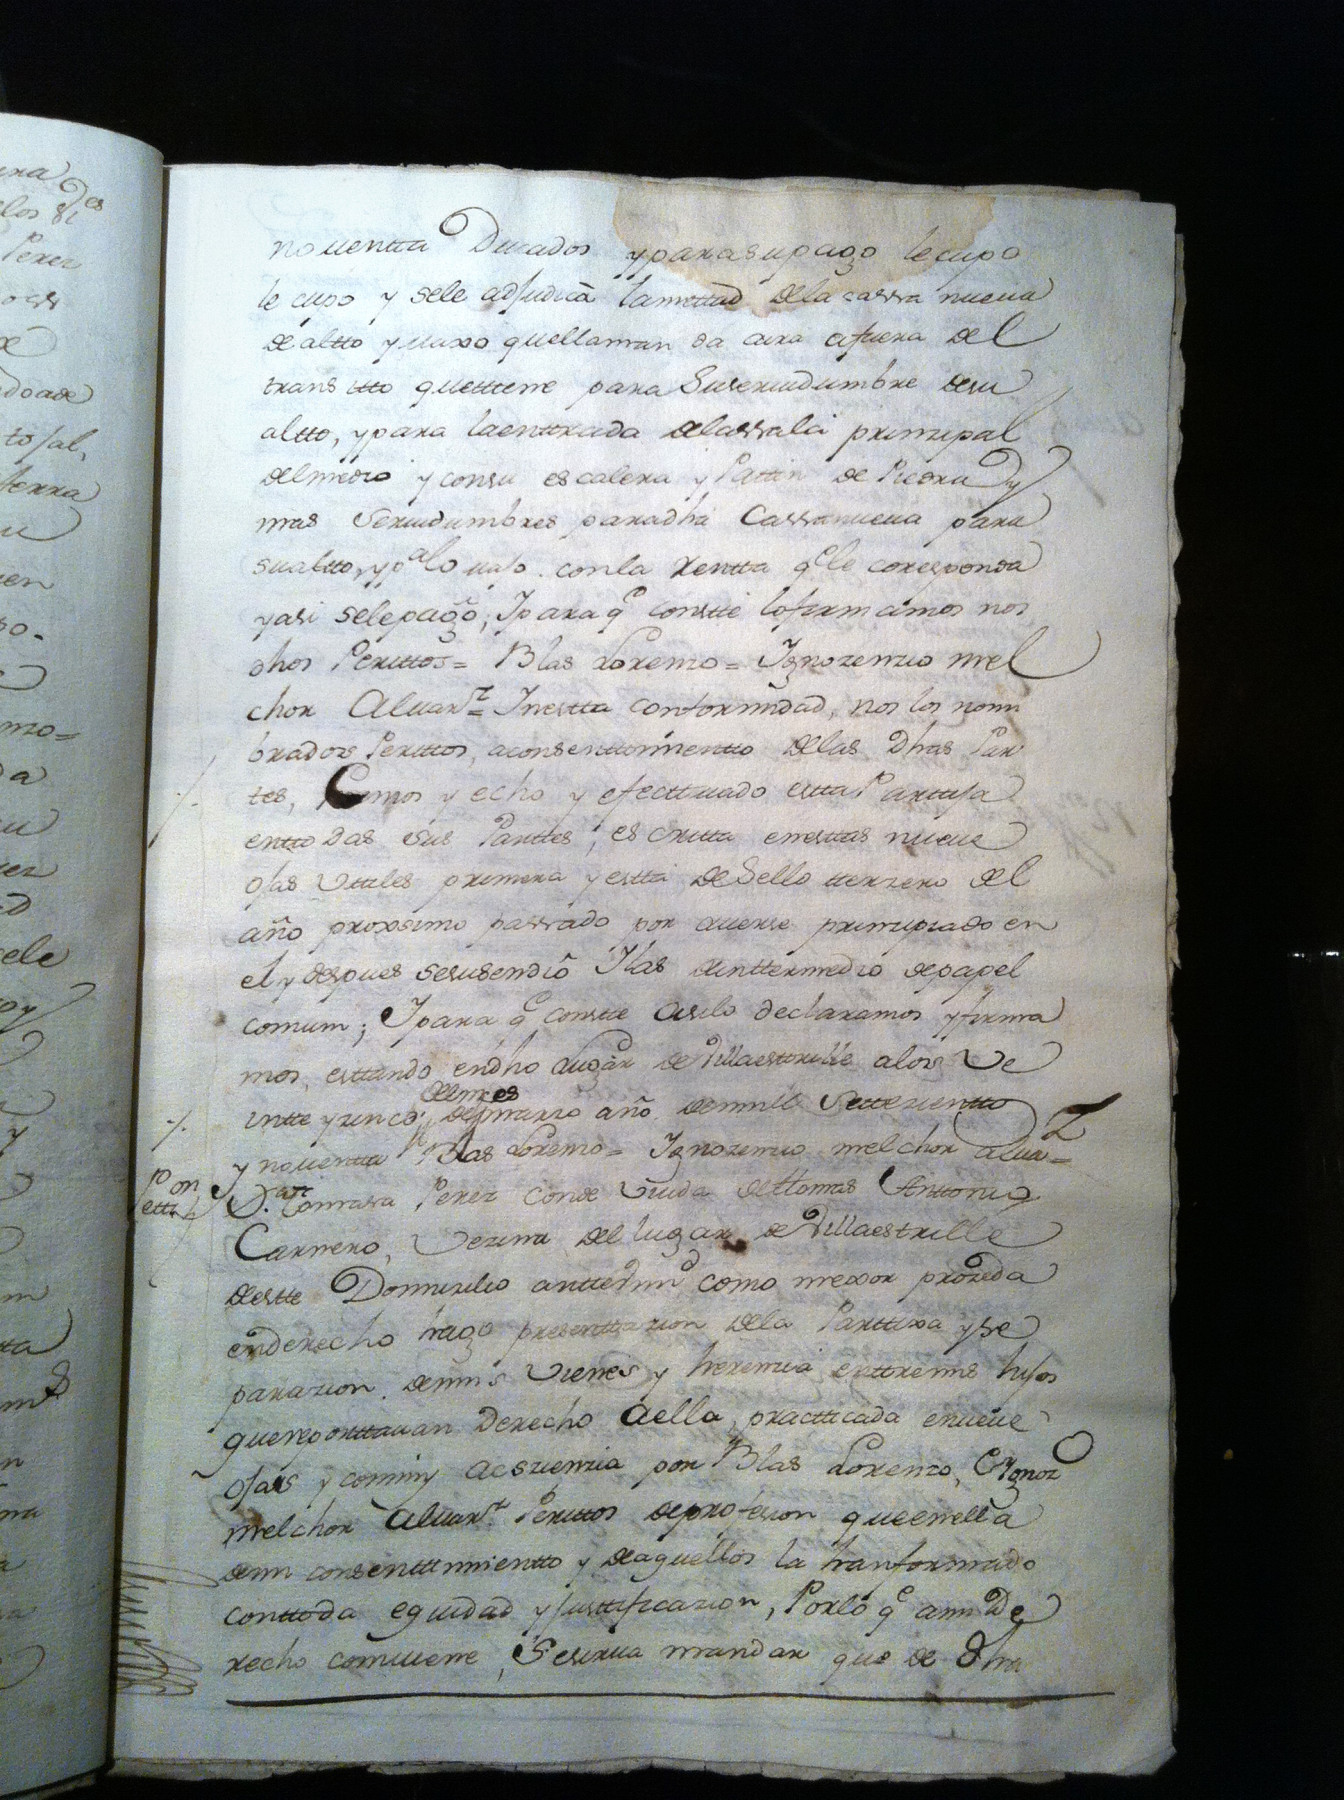 noventta Ducados y para su pago le cupo
le cupo y sele adjudicâ la mettad de la cassa nueva
de altto y vaxo que llaman da aira afuera del
transitto que ttiene para Suservidumbre desu
altto, y para la enttrada de la ssala prinzipal
del medio y con su escalera y Pattin de Piedra y
mas Servidumbres para dha Cassa nueva para
su altto, y pª lo vajo. con la Rentta qe le coresponda
y asi sele pagô; Y para qe constte lo firmamos nos
dhos Perittos = Blas Lorenzo = Ygnozenzio mel
chor Alvarz = Y nestta conformidad, nos los nom
brados Perittos, a consenttimientto de las Dhas Par
tes, y echo y efecttuado estta Parttija
en ttodas sus Parttes; escritta en esttas nueve
ojas Uttiles primera y estta de Sello tterzero del
año proxsimo passado por averse prinzipiado en
el y despues se susendiô Y las de inttermedio de papel
comun; Y para qe constte Asilo declaramos y firma
mos, esttando en dho Lugar de Villaesttrille alos Ve
intte y zinco, del mes de marzo año de mill Settezienttos
y noventta Blas Lorenzo = Ygnozenzio melchor alvarz =
Pon
etta
Dª Tomasa Perez Conde Viuda de Ttomas Anttonio
Carnero, Vezina del lugar de Villaestrille
destte Domizilio antte Vm como mexor prozeda
en derecho hago presenttazion de la Parttixa y se
parazion de mis Vienes y herenzia enttre mis hijos
que reporttavan Derecho Aella, practticada en nueve
ojas y por Blas Lorenzo, e Ygnozº
melchor Alvarz Perittos de profesion que en ella
de mi consenttimientto y de aquellos la han formado
con ttoda equidad y justtificazion, Por lo qe a mi de
recho comviene, Se sirva mandar que de Dha